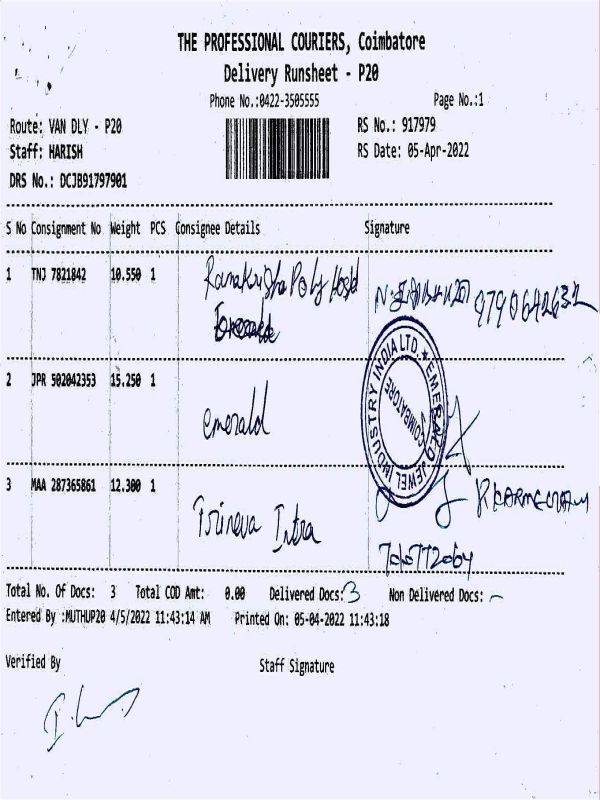 THE PROFESSIONAL COURIERS, Coimbatore
Delivery Runsheet - P20
Phone No.:0422-3505555 Page No.:1
Route: VAN DLY - P20 RS No.: 917979
Staff: HARISH RS Date: 05-Apr-2022
DRS No.: DCJB91797901
S No Consignment No Weight PCS Consignee Details Signature
1 TNJ 7821842 10.550 1
9790642632
2 JPR 502042353 15.250 1 emerald
EMERALD JEWEL INDUSTRY INDIA LTD. ★
COIMBATORE
3 MAA 287365861 12.300 1
Total No. Of Docs: 3 Total COD Amt: 0.00 Delivered Docs: 3 Non Delivered Docs: -
Entered By :MUTHUP20 4/5/2022 11:43:14 AM Printed On: 05-04-2022 11:43:18
Verified By Staff Signature